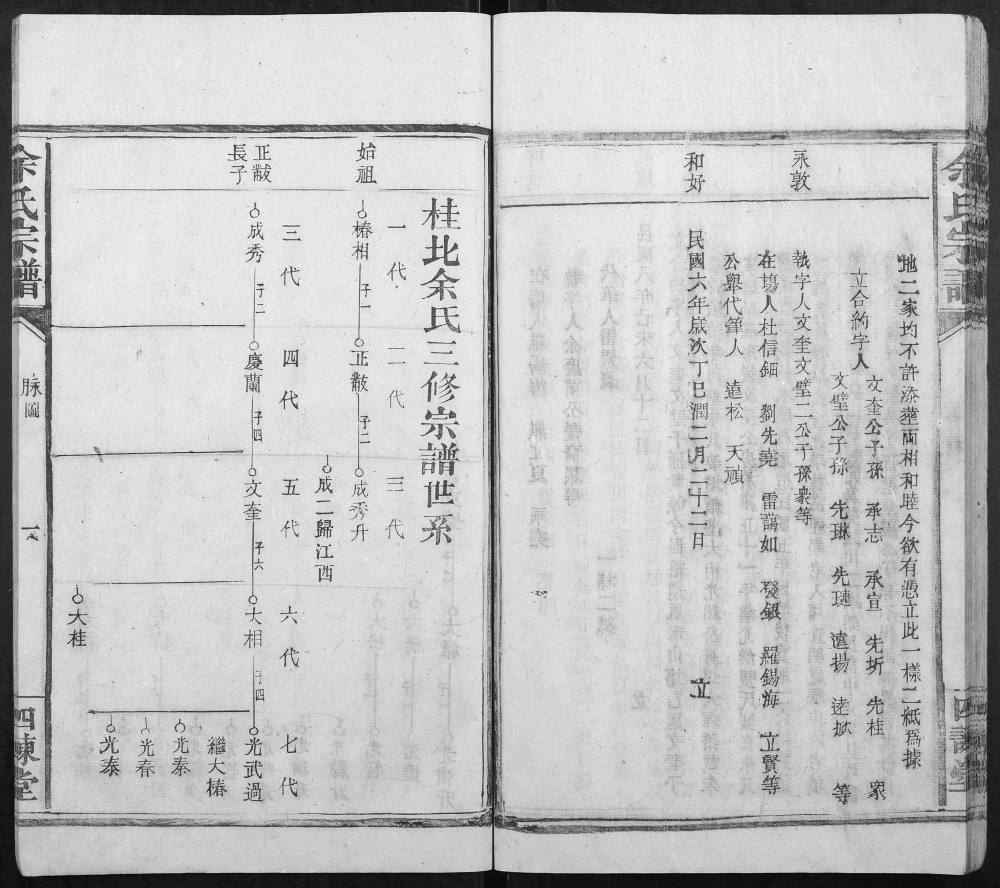 地二家均不許添塟兩相和睦今欲有憑立此一樣二紙爲據
立合約字人
文奎公子孫 承志 承宣 先圻 先桂 衆
文璧公子孫 先琳 先璉 遠揚 等
永敦
執字人文奎文璧二公子孫衆等
在塲人杜信鈿 劉先堯 雷藹如 發銀 羅錫海 立賢等
公舉代筆人 遠松 天頑
和好
民國六年歲次丁巳潤二月二十二日 立
桂北余氏三修宗譜世系
一代 二代 三代
始祖
椿相 子一 正黻 子二 成秀升
成二歸江西
三代 四代 五代 六代 七代
正黻
長子
成秀 子二 慶蘭 子四 文奎 子六 大相 子四 光武過
繼大椿
光泰
光春
光泰
大桂
余氏宗譜
脉圖
四諫堂